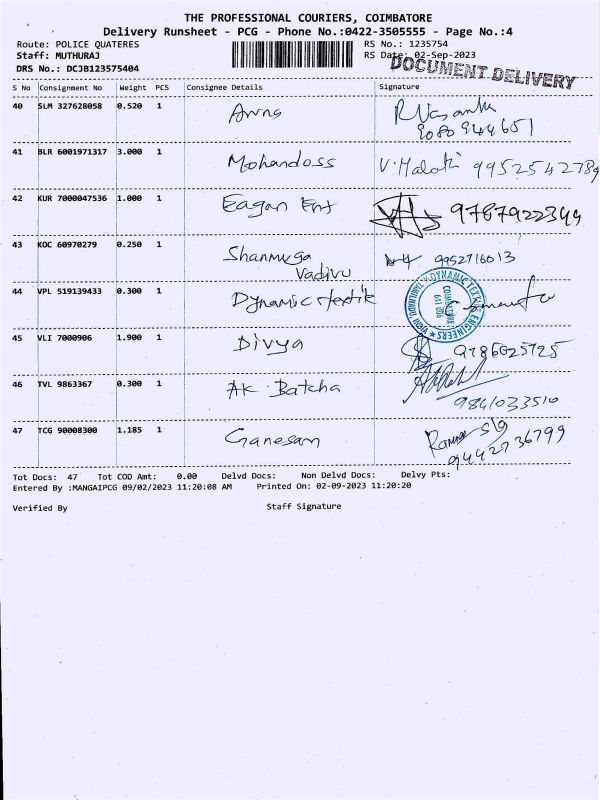 THE PROFESSIONAL COURIERS, COIMBATORE
Delivery Runsheet - PCG - Phone No.:0422-3505555 - Page No.:4
Route: POLICE QUATERES RS No.: 1235754
Staff: MUTHURAJ RS Date: 02-Sep-2023
DRS No.: DCJB123575404 DOCUMENT DELIVERY
S No Consignment No Weight PCS Consignee Details Signature
40 SLM 327628058 0.520 1
9080944651
41 BLR 6001971317 3.000 1 Mohandoss V. Malathi 9952542789
42 KUR 7000047536 1.000 1 Eagan Ent 9787922344
43 KOC 60970279 0.250 1 Shanmuga 9952716013
Vadivu
44 VPL 519139433 0.300 1 Dynamic
45 VLI 7000906 1.900 1 Divya 9786025725
46 TVL 9863367 0.300 1 AK Batcha
9841033510
47 TCG 90008300 1.185 1 Ganesan
9442736799
Tot Docs: 47 Tot COD Amt: 0.00 Delvd Docs: Non Delvd Docs: Delvy Pts:
Entered By :MANGAIPCG 09/02/2023 11:20:08 AM Printed On: 02-09-2023 11:20:20
Verified By Staff Signature